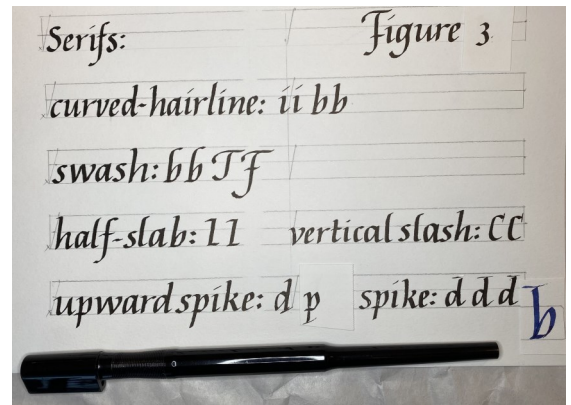 Serifs: Figure 3
curved-hairline: ii bb
swash: bb T F
half-slab: II vertical slash: CC
upward spike: d p spike: d d d
b